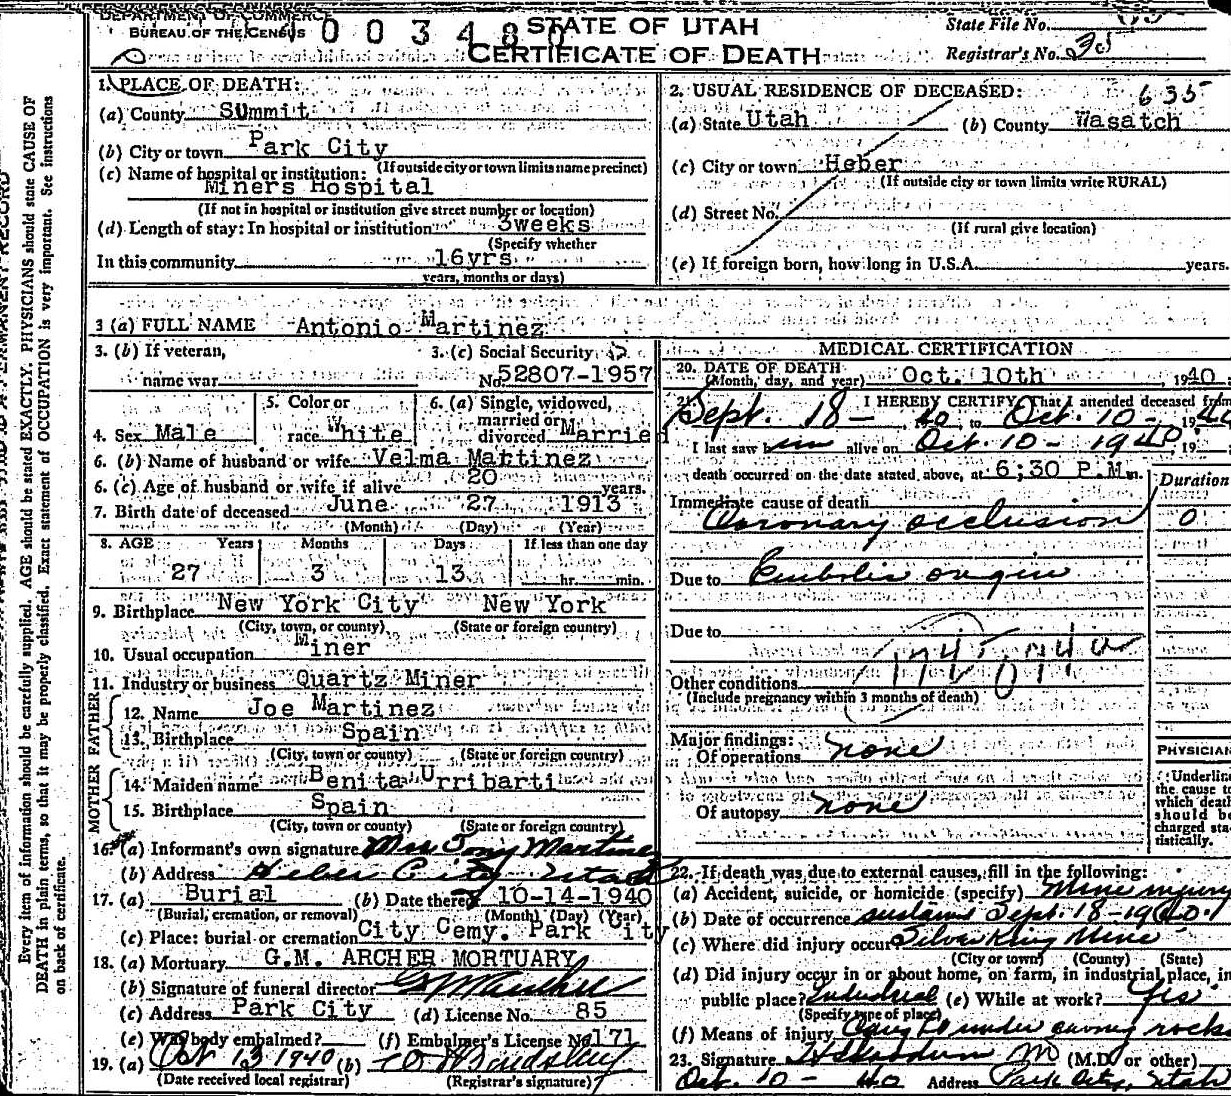 DEPARTMENT OF COMMERCE
BUREAU OF THE CENSUS
0 0 3 4 8 0
STATE OF UTAH
CERTIFICATE OF DEATH
State File No.
Registrar's No. 35
Every item of information should be carefully supplied. AGE should be stated EXACTLY. PHYSICIANS should state CAUSE OF
DEATH in plain terms, so that it may be properly classified. Exact statement of OCCUPATION is very important. See instructions
on back of certificate.
1. PLACE OF DEATH:
(a) County Summit
(b) City or town Park City
(If outside city or town limits name precinct)
(c) Name of hospital or institution:
Miners Hospital
(If not in hospital or institution give street number or location)
(d) Length of stay: In hospital or institution 3weeks
(Specify whether
In this community 16yrs
years, months or days)
2. USUAL RESIDENCE OF DECEASED: 635
(a) State Utah (b) County Wasatch
(c) City or town Heber
(If outside city or town limits write RURAL)
(d) Street No.
(If rural give location)
(e) If foreign born, how long in U.S.A. years.
3 (a) FULL NAME Antonio Martinez
3. (b) If veteran,
name war
3. (c) Social Security
No. 52807-1957
4. Sex Male
5. Color or
race White
6. (a) Single, widowed,
married or
divorced Married
6. (b) Name of husband or wife Velma Martinez
6. (c) Age of husband or wife if alive 20 years.
7. Birth date of deceased June 27 1913
(Month) (Day) (Year)
8. AGE Years Months Days If less than one day
27 3 13 hr. min.
9. Birthplace New York City New York
(City, town, or county) (State or foreign country)
10. Usual occupation Miner
11. Industry or business Quartz Miner
FATHER
12. Name Joe Martinez
13. Birthplace Spain
(City, town or county) (State or foreign country)
MOTHER
14. Maiden name Benita Urribarti
15. Birthplace Spain
(City, town or county) (State or foreign country)
16. (a) Informant's own signature Mrs Tony Martinez
(b) Address Heber City Utah
17. (a) Burial (b) Date thereof 10-14-1940
(Burial, cremation, or removal) (Month) (Day) (Year)
(c) Place: burial or cremation City Cemy. Park City
18. (a) Mortuary G.M. ARCHER MORTUARY
(b) Signature of funeral director
(c) Address Park City (d) License No. 85
(e) Was body embalmed? (f) Embalmer's License No 171
19. (a) Oct 13 1940 (b)
(Date received local registrar) (Registrar's signature)
MEDICAL CERTIFICATION
20. DATE OF DEATH
(Month, day, and year) Oct. 10th, 1940
21. I HEREBY CERTIFY, That I attended deceased from
Sept. 18-, 40, to Oct. 10-, 1940
I last saw him alive on Oct. 10-1940, 19
death occurred on the date stated above, at 6;30 P.M m.
Duration
Immediate cause of death
Coronary occlusion 0
Due to Embolis origin
Due to
Other conditions
(Include pregnancy within 3 months of death)
Major findings:
Of operations none
Of autopsy none
PHYSICIAN
Underline
the cause to
which death
should be
charged sta-
tistically.
22. If death was due to external causes, fill in the following:
(a) Accident, suicide, or homicide (specify) Mine injury
(b) Date of occurrence sustained Sept. 18-1940.
(c) Where did injury occur Silver King Mine
(City or town) (County) (State)
(d) Did injury occur in or about home, on farm, in industrial place, in
public place? Industrial (e) While at work? Yes
(Specify type of place)
(f) Means of injury Caught under caving rocks
23. Signature (M.D. or other)
Oct. 10- 40 Address Park City, Utah